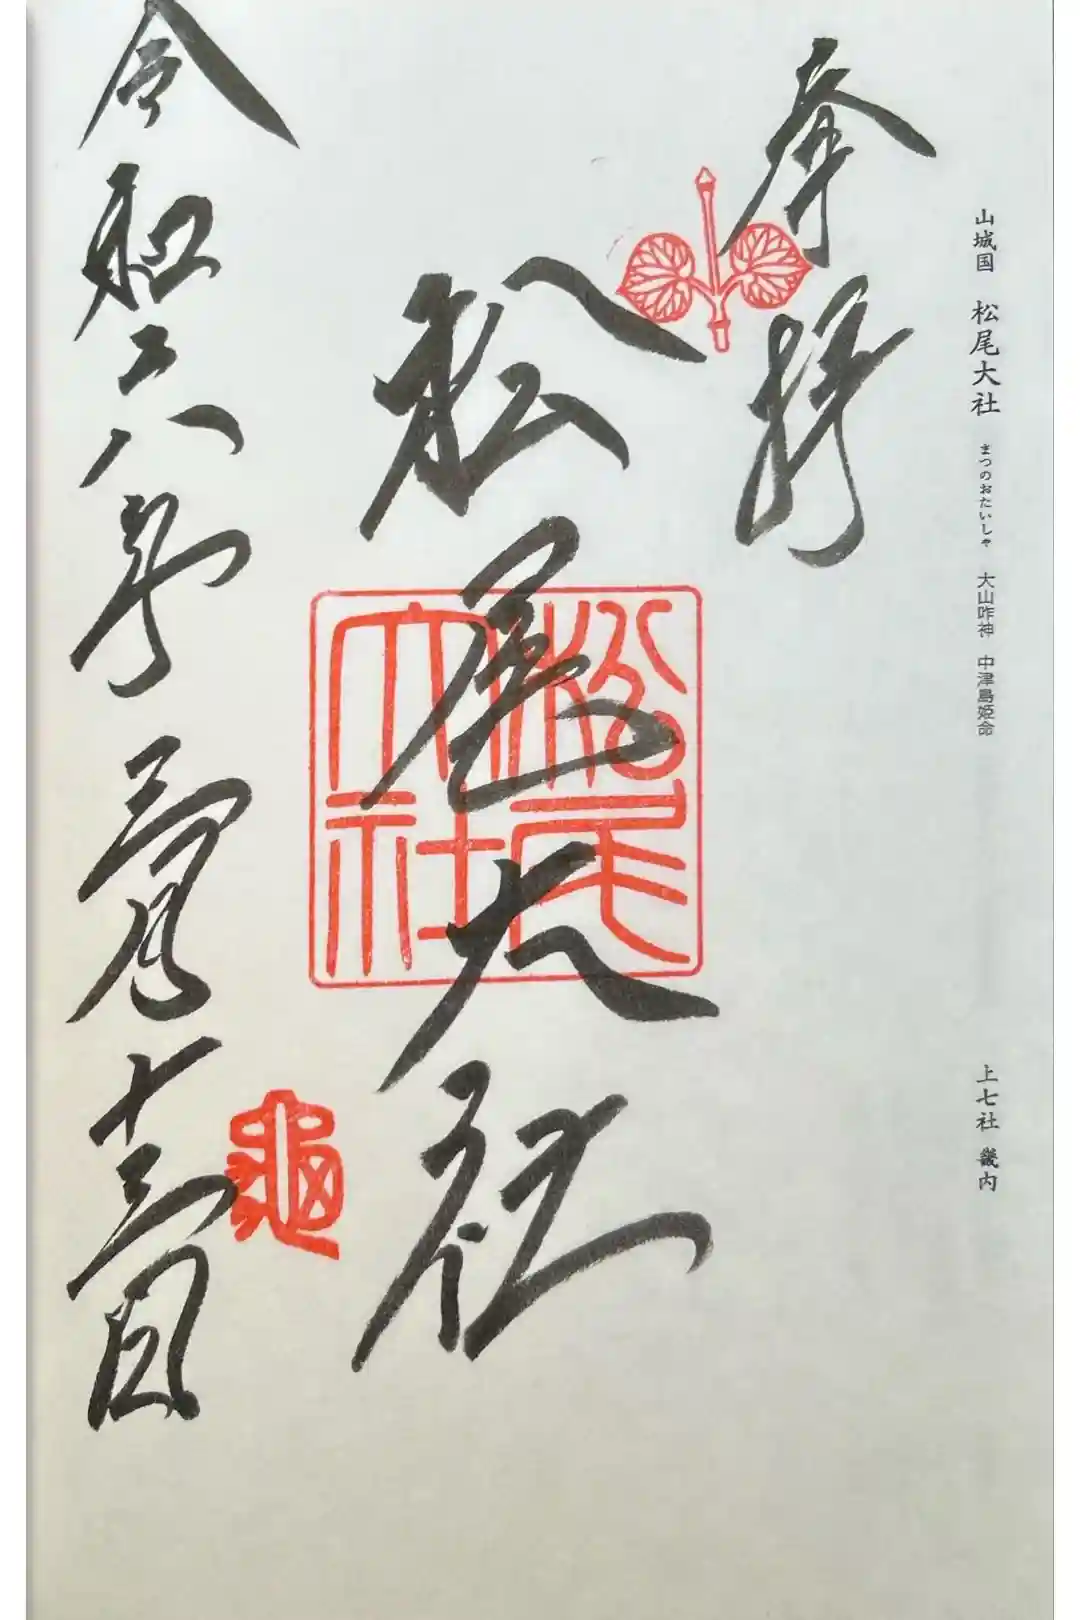 山城国 松尾大社 まつのおたいしゃ 大山咋神 中津島姫命 上七社 畿内
奉拝
松尾大社
松尾大社
令和六年三月十三日
龜